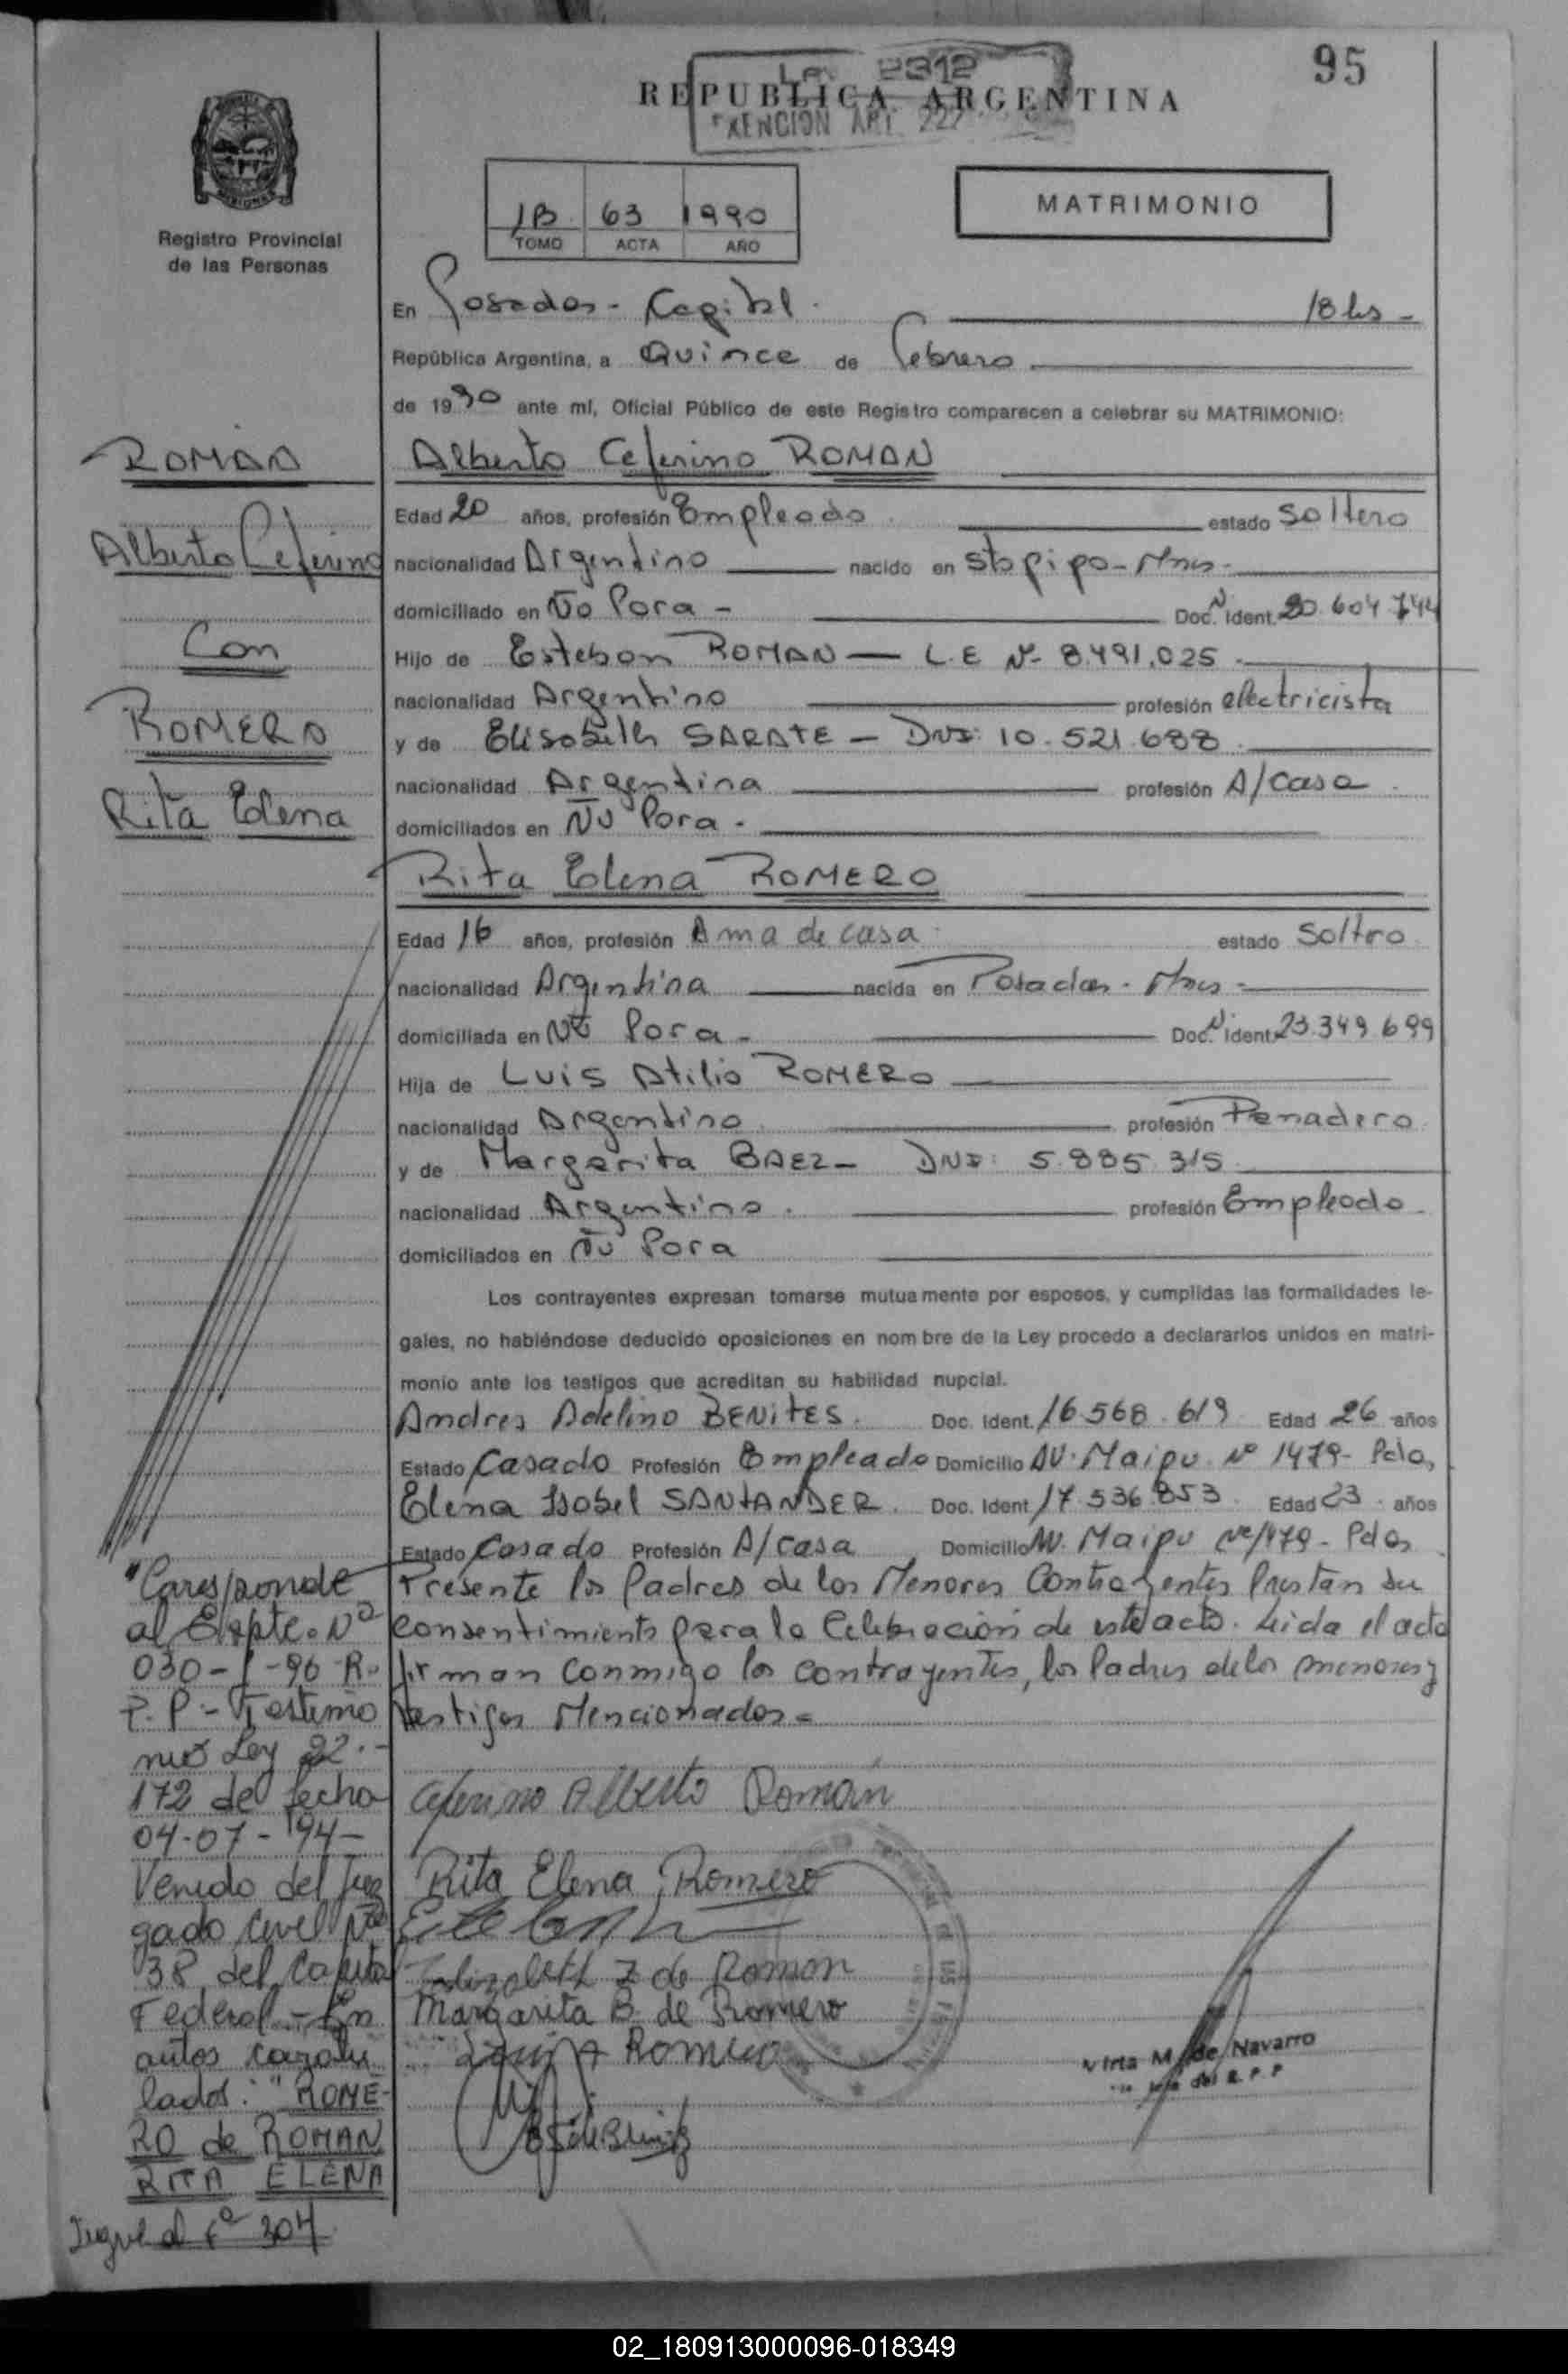 95
LA 2312
REPUBLICA ARGENTINA
EXENCION ART. 222
Registro Provincial
de las Personas
1B 63 1990
TOMO ACTA AÑO
MATRIMONIO
En Posadas - Capital. 18 hs -
República Argentina, a Quince de Febrero
de 1990 ante mí, Oficial Público de este Registro comparecen a celebrar su MATRIMONIO:
ROMAN
Alberto Ceferino
Con
ROMERO
Rita Elena
Alberto Ceferino ROMAN
Edad 20 años, profesión Empleado. estado Soltero
nacionalidad Argentino nacido en Sto pipo - Mnes -
domiciliado en Ñu Pora - Doc. N Ident. 20.604.744
Hijo de Esteban ROMAN — L.E Nº 8.491.025 -
nacionalidad Argentino profesión electricista
y de Elisabeth SARATE - DNI: 10.521.688
nacionalidad Argentina profesión A/casa
domiciliados en Ñu Pora -
Rita Elena ROMERO
Edad 16 años, profesión Ama de casa estado Soltero
nacionalidad Argentina nacida en Posadas - Mnes -
domiciliada en Ñu Pora - Doc. N ident. 23.349.699
Hija de Luis Atilio ROMERO
nacionalidad Argentino profesión Panadero
y de Margarita BAEZ - DNI: 5.885.315
nacionalidad Argentino. profesión Empleado.
domiciliados en Ñu Pora
Los contrayentes expresan tomarse mutuamente por esposos, y cumplidas las formalidades le-
gales, no habiéndose deducido oposiciones en nombre de la Ley procedo a declararlos unidos en matri-
monio ante los testigos que acreditan su habilidad nupcial.
Andres Adelino BENITES. Doc. Ident. 16.568.619 Edad 26 años
Estado Casado Profesión Empleado Domicilio AV. Maipu Nº 1479 - Pdas,
Elena Isabel SANTANDER. Doc. Ident. 17.536.853. Edad 23. años
Estado Casado Profesión A/casa Domicilio AV. Maipu Nº 1479 - Pdas
Presente los Padres de los Menores Contrayentes Prestan su
consentimiento para la Celebracion de este acto. Leida el acta
firman conmigo los contrayentes, los Padres de los menores y
testigos Mencionados =
"Corresponde
al Expte. Nº
030-1-96-R.
P. P - Testimo
nio Ley 22.-
172 de fecha
04-07-94-
Venido del Juz
gado Civil Nº
38 del Capital
Federal - En
autos caratu
lados: "ROME-
RO de ROMAN
RITA ELENA
Sigue al fº 304
Ceferino Alberto Román
Rita Elena Romero
Elizabeth Z de Roman
Margarita B. de Romero
Luis A Romero
Virta M. de Navarro
02_180913000096-018349